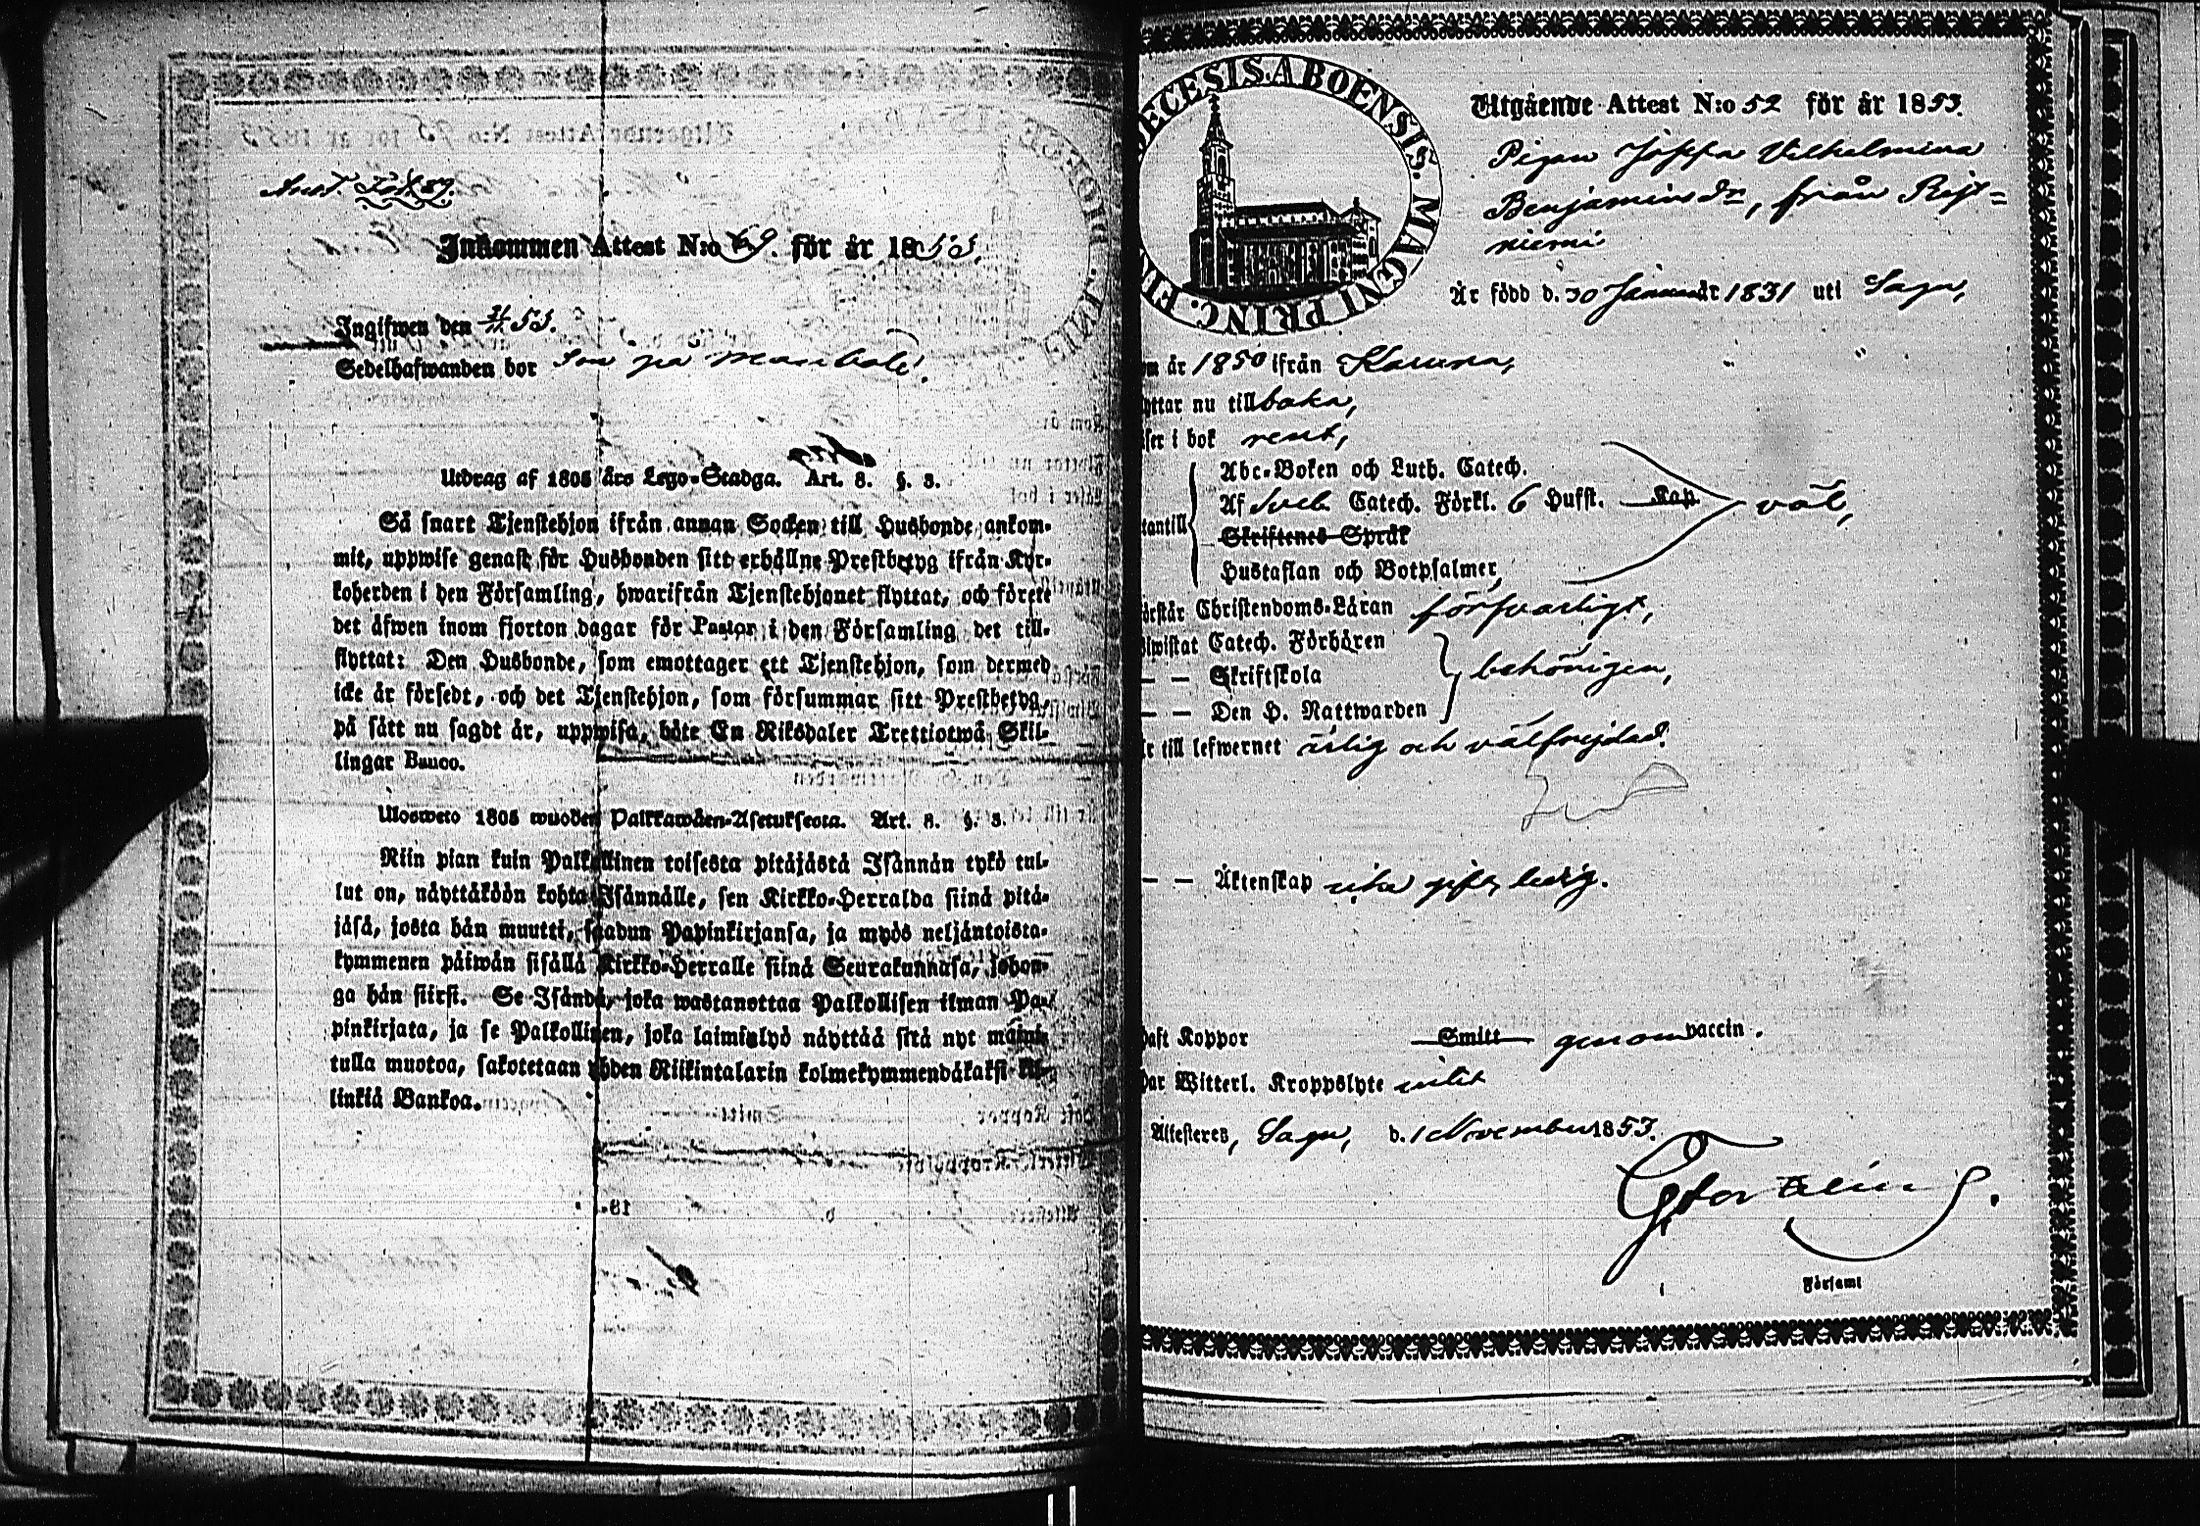 Ant. Fol. 89.
Inkommen Attest N:o 69. för år 1853.
Ingifwen den 3/11 53.
Sedelhafwanden bor på
Utdrag af 1805 års Lego-Stadga. Art. 8. §. 3.
Så snart Tjenstehjon ifrån annan Socken till Husbonde ankom-
mit, uppwise genast för Husbonden sitt erhållne Prestbetyg ifrån Kyr-
koherden i den Församling, hwarifrån Tjenstehjonet flyttat, och förete
det äfwen inom fjorton dagar för Pastor i den Församling det till-
flyttat: Den Husbonde, som emottager ett Tjenstehjon, som dermed
icke är försedt, och det Tjenstehjon, som försummar sitt Prestbetyg,
på sätt nu sagdt är, uppwisa, böte En Riksdaler Trettiotwå Skil-
lingar Banco.
Ulosweto 1805 wuoden Palkkawäen-Asetuksesta. Art. 8. §. 3.
Niin pian kuin Palkollinen toisesta pitäjästä Isännän tykö tul-
lut on, näyttäköön kohta Isännälle, sen Kirkko-Herralda siinä pitä-
jäsä, josta hän muutti, saadun Papinkirjansa, ja myös neljäntoista-
kymmenen päiwän sisällä Kirkko-Herralle siinä Seurakunnasa, johon-
ga hän siirsi. Se Isändä, joka wastanottaa Palkollisen ilman Pa-
pinkirjata, ja se Palkollinen, joka laimislyö näyttää sitä nyt mainit-
tulla muotoa, sakotetaan yhden Riikintalarin kolmekymmendäkaksi kil-
linkiä Bankoa.
DIOECESIS ABOENSIS. MAGNI PRINC. FIN
Utgående Attest N:o 52 för år 1853.
Pigan Josefa Vilhelmina
Benjaminsdr, från Rist=
niemi
Är född d. 30 Januari år 1831 uti Sagu,
om år 1850 ifrån Karuna,
yttar nu tillbaka,
äser i bok rent,
Abc-Boken och Luth. Catech.
Af Sveb. Catech. Förkl. 6 Hufst. Kap. väl,
tantill
Skriftenes Språk
Hustaflan och Botpsalmer,
örstår Christendoms-Läran försvarligt,
iwistat Catech. Förhören
— — Skriftskola behörigen,
— — Den H. Nattwarden
r till lefwernet ärlig och välfrejdad.
— — Äktenskap icke gift, ledig.
aft Koppor Smitt genom vaccin.
ar Witterl. Kroppslyte intet
Attesteres, Sagu, d. 1 November 1853.
Församl